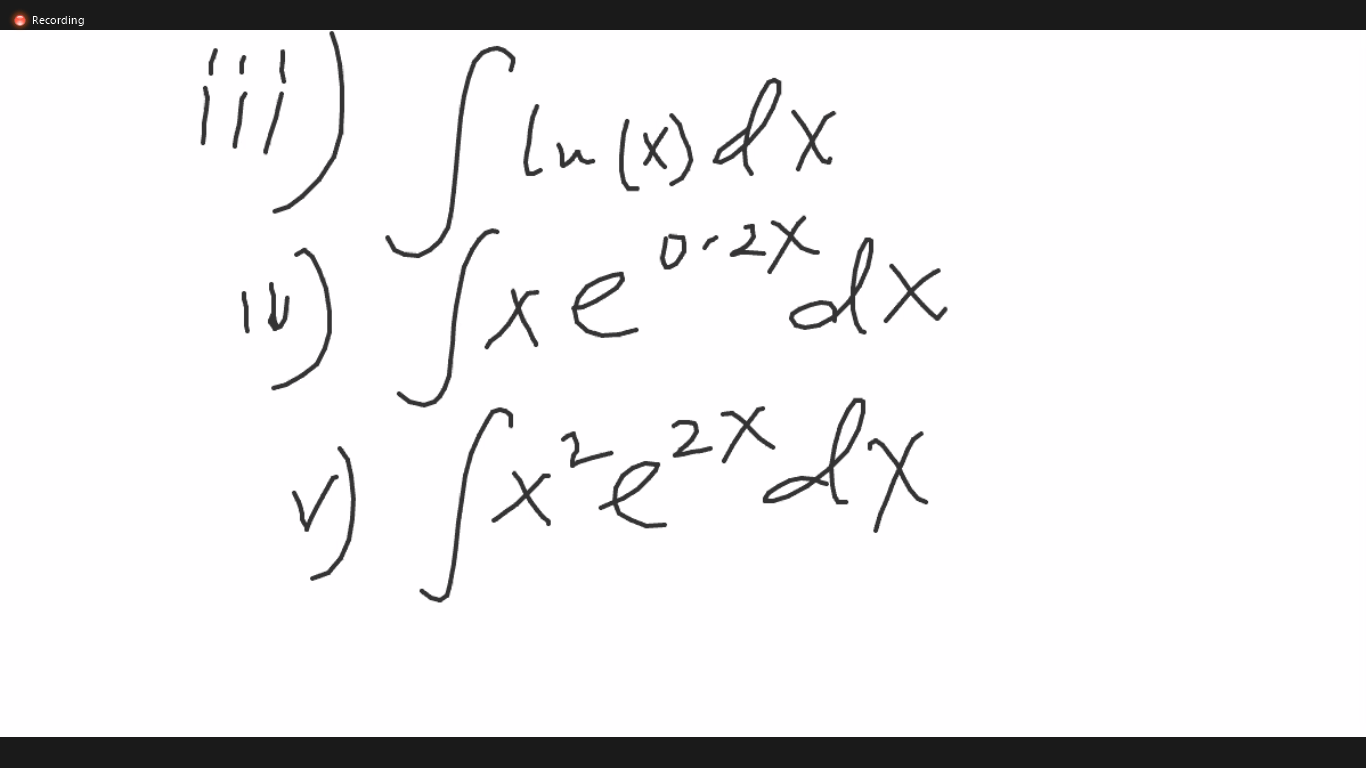 Recording
iii) ∫ ln(x) dx
iv) ∫ x e^{0.2x} dx
v) ∫ x^2 e^{2x} dx